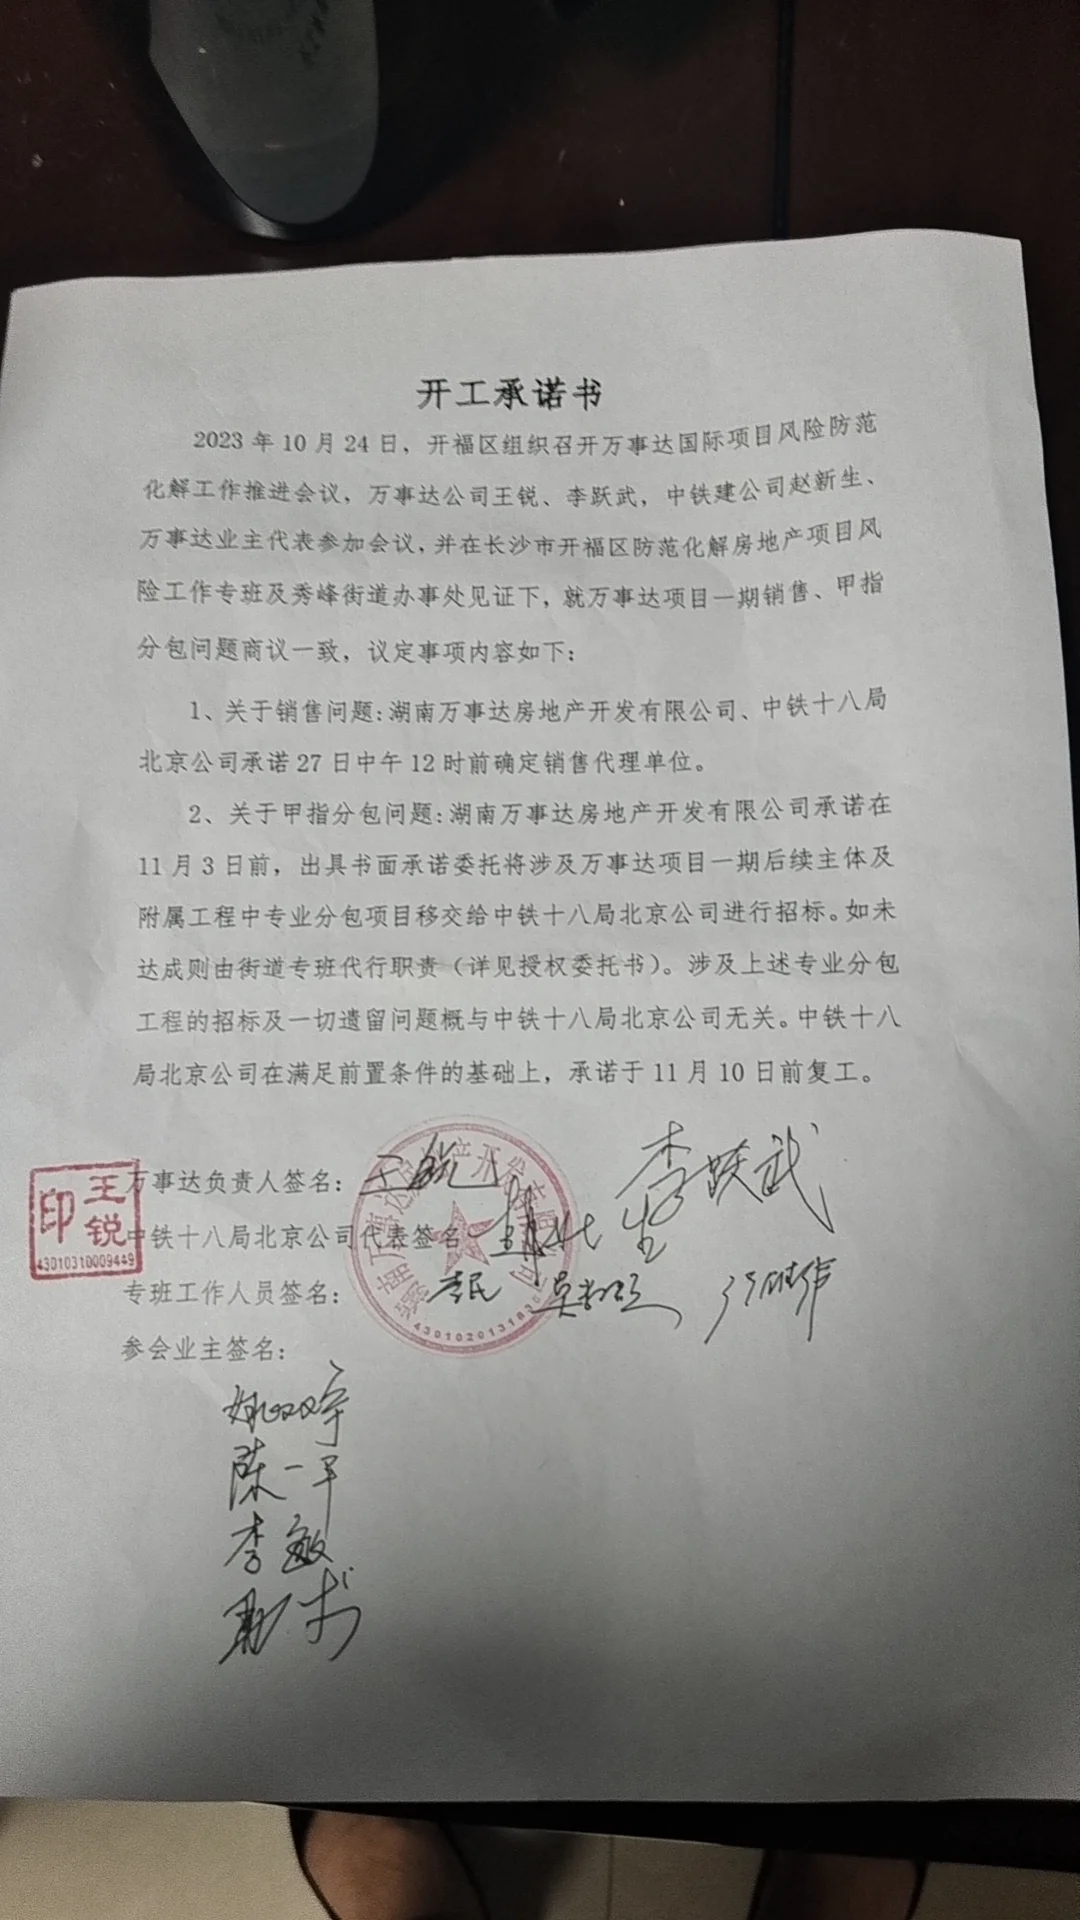 开工承诺书
2023年10月24日，开福区组织召开万事达国际项目风险防范
化解工作推进会议，万事达公司王锐、李跃武，中铁建公司赵新生、
万事达业主代表参加会议，并在长沙市开福区防范化解房地产项目风
险工作专班及秀峰街道办事处见证下，就万事达项目一期销售、甲指
分包问题商议一致，议定事项内容如下：
1、关于销售问题：湖南万事达房地产开发有限公司、中铁十八局
北京公司承诺27日中午12时前确定销售代理单位。
2、关于甲指分包问题：湖南万事达房地产开发有限公司承诺在
11月3日前，出具书面承诺委托将涉及万事达项目一期后续主体及
附属工程中专业分包项目移交给中铁十八局北京公司进行招标。如未
达成则由街道专班代行职责（详见授权委托书）。涉及上述专业分包
工程的招标及一切遗留问题概与中铁十八局北京公司无关。中铁十八
局北京公司在满足前置条件的基础上，承诺于11月10日前复工。
万事达负责人签名：王锐 李跃武
王锐印
43010310009449
中铁十八局北京公司代表签名 赵新生
专班工作人员签名：李民
参会业主签名：
陈一平
李敏